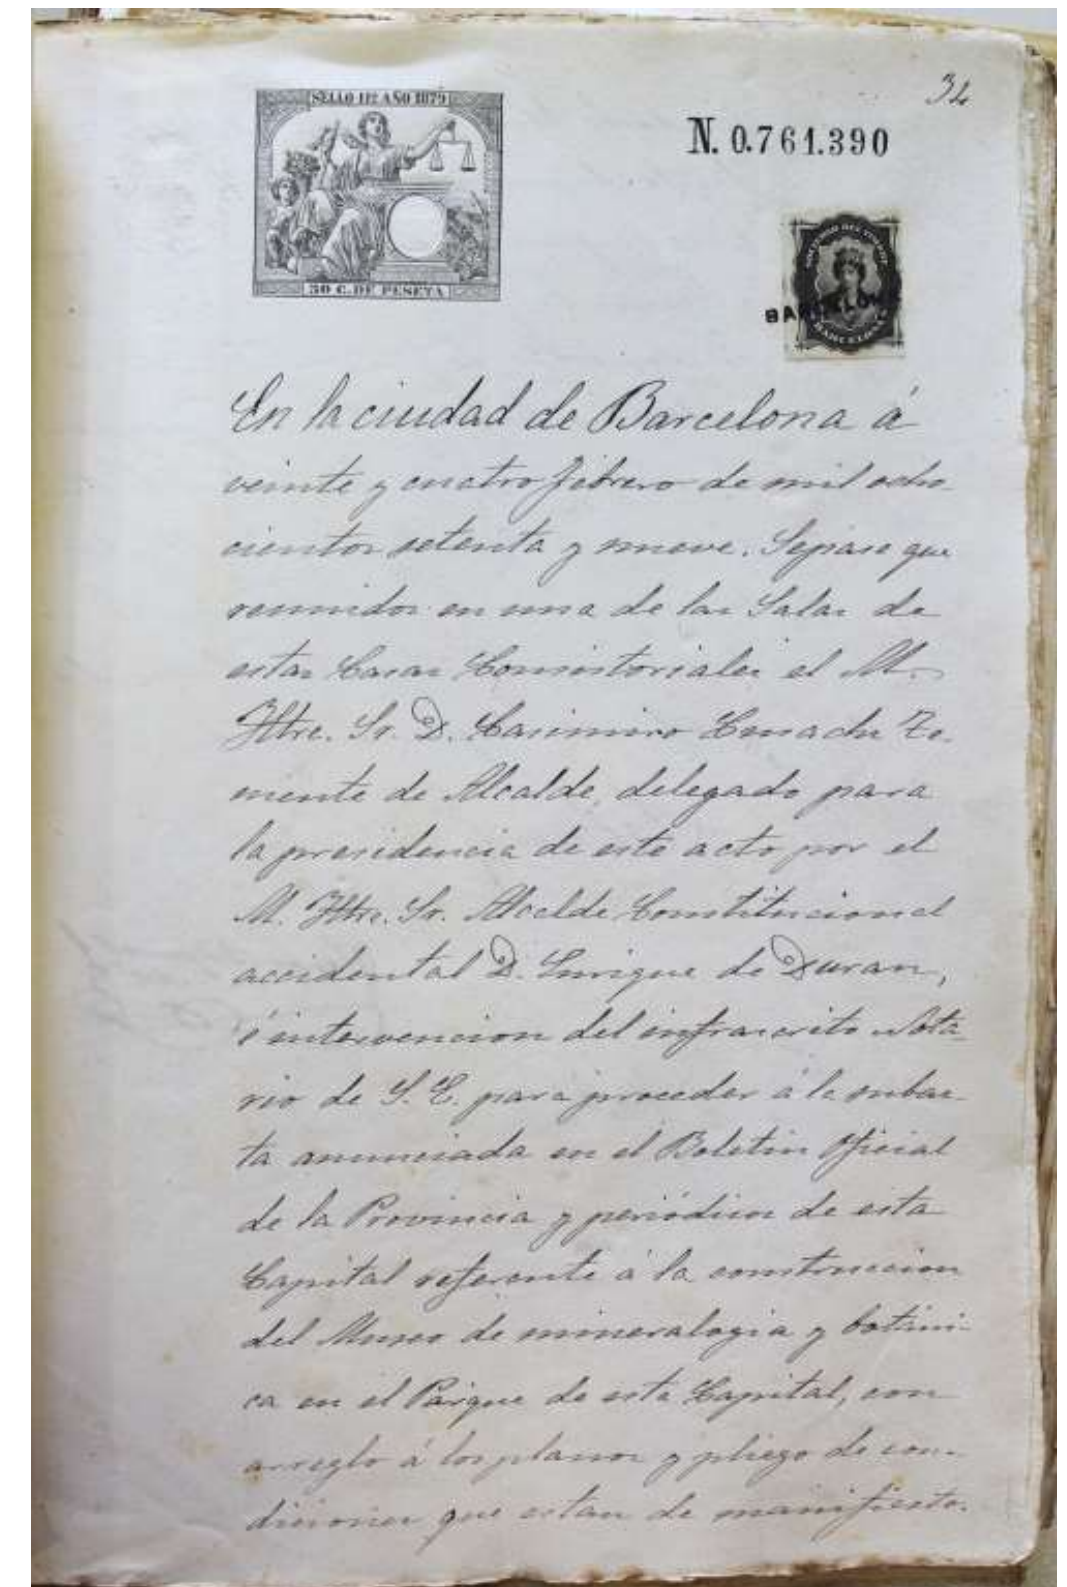 34
SELLO 11º AÑO 1879
N. 0.761.390
50 C. DE PESETA
BARCELONA
En la ciudad de Barcelona á
veinte y cuatro febrero de mil ocho-
cientos setenta y nueve. Sepase que
reunidos en una de las Salas de
estas Casas Consistoriales el M.
Iltre. Sr. D. Casimiro Te-
niente de Alcalde, delegado para
la presidencia de este acto por el
M. Iltre. Sr. Alcalde Constitucional
accidental D. Enrique de Duran,
é intervencion del infrascrito Nota-
rio de S. E. para proceder á la subas-
ta anunciada en el Boletin Oficial
de la Provincia y periódicos de esta
Capital referente á la construccion
del Museo de mineralogia y botáni-
ca en el Parque de esta Capital, con
arreglo á los planos y pliego de con-
diciones que estan de manifiesto.